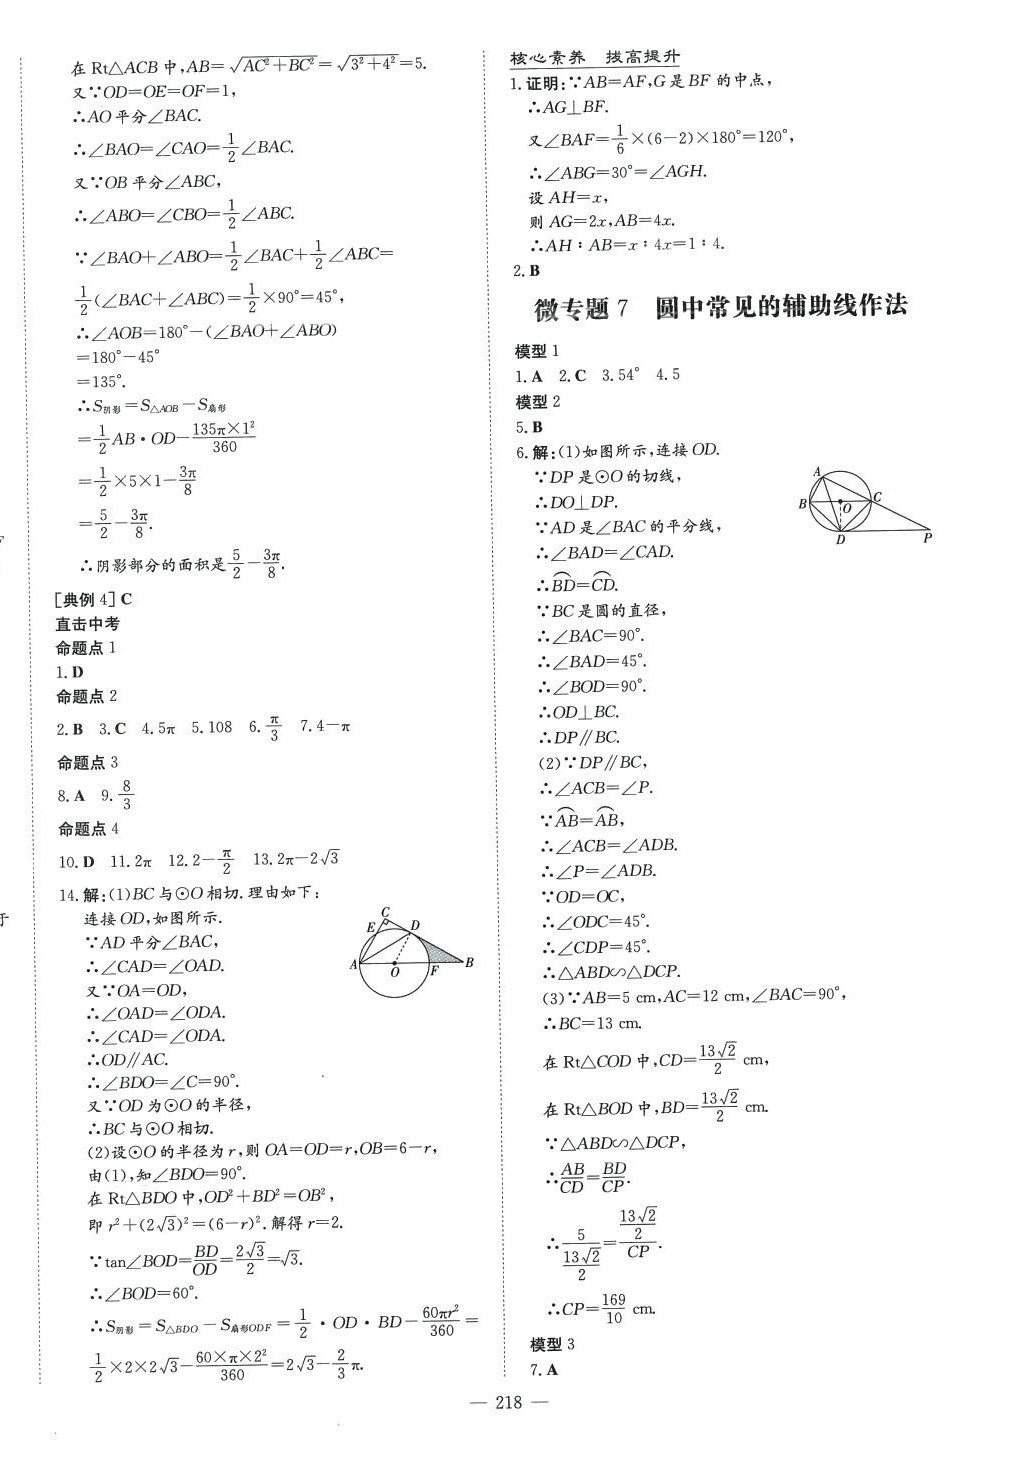 在 Rt△ACB 中,AB=√(AC²+BC²)=√(3²+4²)=5.
又∵OD=OE=OF=1,
∴AO 平分∠BAC.
∴∠BAO=∠CAO=1/2∠BAC.
又∵OB 平分∠ABC,
∴∠ABO=∠CBO=1/2∠ABC.
∵∠BAO+∠ABO=1/2∠BAC+1/2∠ABC=
1/2(∠BAC+∠ABC)=1/2×90°=45°,
∴∠AOB=180°-(∠BAO+∠ABO)
=180°-45°
=135°.
∴S阴影=S△AOB-S扇形
=1/2AB·OD-135π×1²/360
=1/2×5×1-3π/8
=5/2-3π/8.
∴阴影部分的面积是5/2-3π/8.
[典例 4] C
直击中考
命题点 1
1. D
命题点 2
2. B 3. C 4. 5π 5. 108 6. π/3 7. 4-π
命题点 3
8. A 9. 8/3
命题点 4
10. D 11. 2π 12. 2-π/2 13. 2π-2√3
14. 解:(1)BC 与⊙O 相切.理由如下:
连接 OD,如图所示.
∵AD 平分∠BAC,
∴∠CAD=∠OAD.
又∵OA=OD,
∴∠OAD=∠ODA.
∴∠CAD=∠ODA.
∴OD∥AC.
∴∠BDO=∠C=90°.
又∵OD 为⊙O 的半径,
∴BC 与⊙O 相切.
C
E
D
A
O
F
B
(2)设⊙O 的半径为 r,则 OA=OD=r,OB=6-r,
由(1),知∠BDO=90°.
在 Rt△BDO 中,OD²+BD²=OB²,
即 r²+(2√3)²=(6-r)².解得 r=2.
∵tan∠BOD=BD/OD=2√3/2=√3.
∴∠BOD=60°.
∴S阴影=S△BDO-S扇形ODF=1/2·OD·BD-60πr²/360=
1/2×2×2√3-60×π×2²/360=2√3-2/3π.
核心素养 拔高提升
1. 证明:∵AB=AF,G 是 BF 的中点,
∴AG⊥BF.
又∠BAF=1/6×(6-2)×180°=120°,
∴∠ABG=30°=∠AGH.
设 AH=x,
则 AG=2x,AB=4x.
∴AH∶AB=x∶4x=1∶4.
2. B
微专题 7 圆中常见的辅助线作法
模型 1
1. A 2. C 3. 54° 4. 5
模型 2
5. B
6. 解:(1)如图所示,连接 OD.
∵DP 是⊙O 的切线,
∴DO⊥DP.
∵AD 是∠BAC 的平分线,
∴∠BAD=∠CAD.
∴⌒BD=⌒CD.
∵BC 是圆的直径,
∴∠BAC=90°.
∴∠BAD=45°.
∴∠BOD=90°.
∴OD⊥BC.
∴DP∥BC.
A
B
O
C
D
P
(2)∵DP∥BC,
∴∠ACB=∠P.
∵⌒AB=⌒AB,
∴∠ACB=∠ADB.
∴∠P=∠ADB.
∵OD=OC,
∴∠ODC=45°.
∴∠CDP=45°.
∴△ABD∽△DCP.
(3)∵AB=5 cm,AC=12 cm,∠BAC=90°,
∴BC=13 cm.
在 Rt△COD 中,CD=13√2/2 cm,
在 Rt△BOD 中,BD=13√2/2 cm.
∵△ABD∽△DCP,
∴AB/CD=BD/CP.
∴5/(13√2/2)=(13√2/2)/CP.
∴CP=169/10 cm.
模型 3
7. A
— 218 —